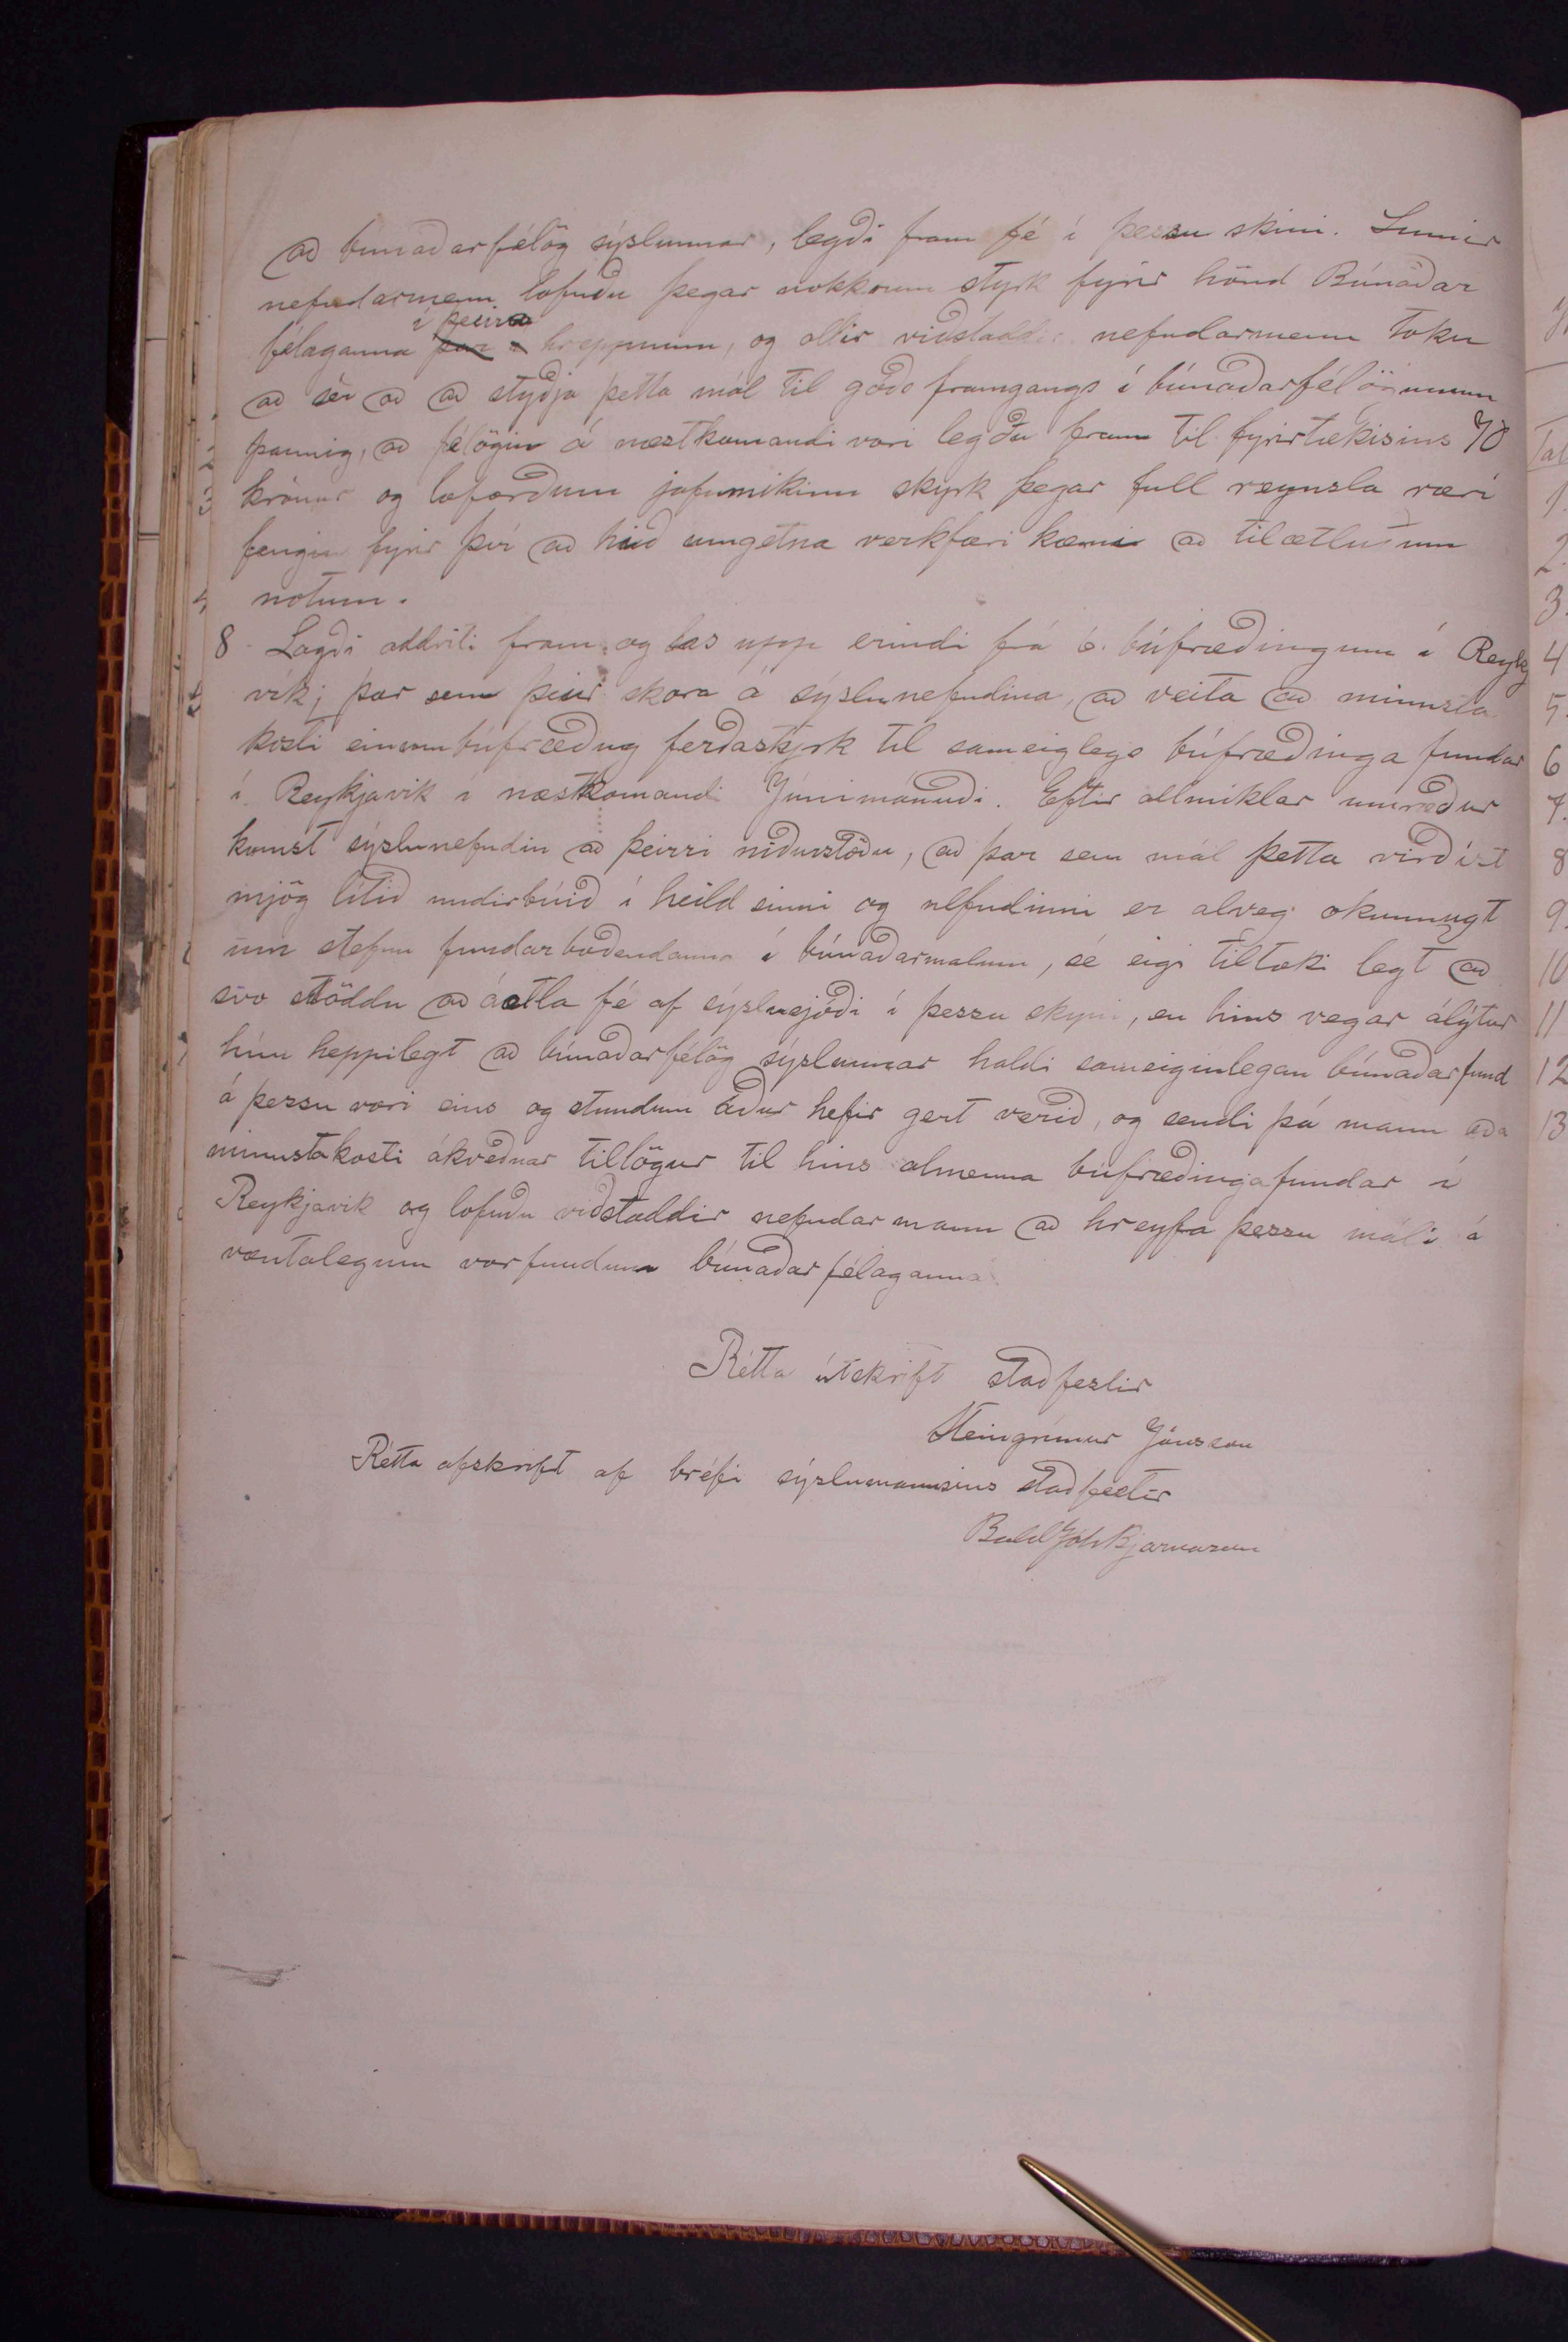 að búnaðarfélög sýslunnar, legði fram fé í þessu skini. Sumir
nefndarmenn lofuðu þegar nokkrum styrk fyrir hönd Búnaðar
félaganna í þeirra hreppnum, og allir viðstaddir nefndarmenn toku
að sér að að styðja þetta mál til góðs framgangs í búnaðarfélögunum
þannig, að félögin á næstkomandi vori legðu fram til fyrirtækisins 70
krónur og loforðum jafnmikinn skyrk þegar full reynsla væri
fengin fyrir því að hið umgetna verkfæri kæmi að tilætluðum
notum.
8 Lagði oddviti fram og las upp erindi frá 6. búfræðingum í Reykj
vík; þar sem þeir skora á sýslunefndina, að veita að minnsta
kosti einum búfræðing ferðastyrk til sameiglegs búfræðinga fundar
í Reykjavik í næstkomandi Júnimánuði. Eftir allmiklar umræður
komst sýslunefndin að þeirri niðurstöðu, að þar sem mál þetta virðist
mjög lítið undirbúið í heild sinni og nefndinni er alveg okunnugt
um stefnu fundarboðendanna í búnaðarmalum, sé eigi tiltæki legt að
svo stöddu að áætla fé af sýslusjóði í þessu skyni, en hins vegar álýtur
hún heppilegt að búnaðarfélög sýslunnar haldi sameiginlegan búnaðarfund
á þessu vori eins og stundum áður hefir gert verið, og sendi þá mann eða
minnstakosti ákveðnar tillögur til hins almenna búfræðingafundar í
Reykjavik og lofuðu viðstaddir nefndarmann að hreyfa þessu máli á
væntalegum vorfundum búnaðarfélaganna
Rétta útskrift staðfestir
Steingrímur Jónsson
Rétta afskrift af bréfi sýslumannsins staðfestir
Bald Joh Bjarnason
4
5
6
7.
8
9.
10
11
12
13